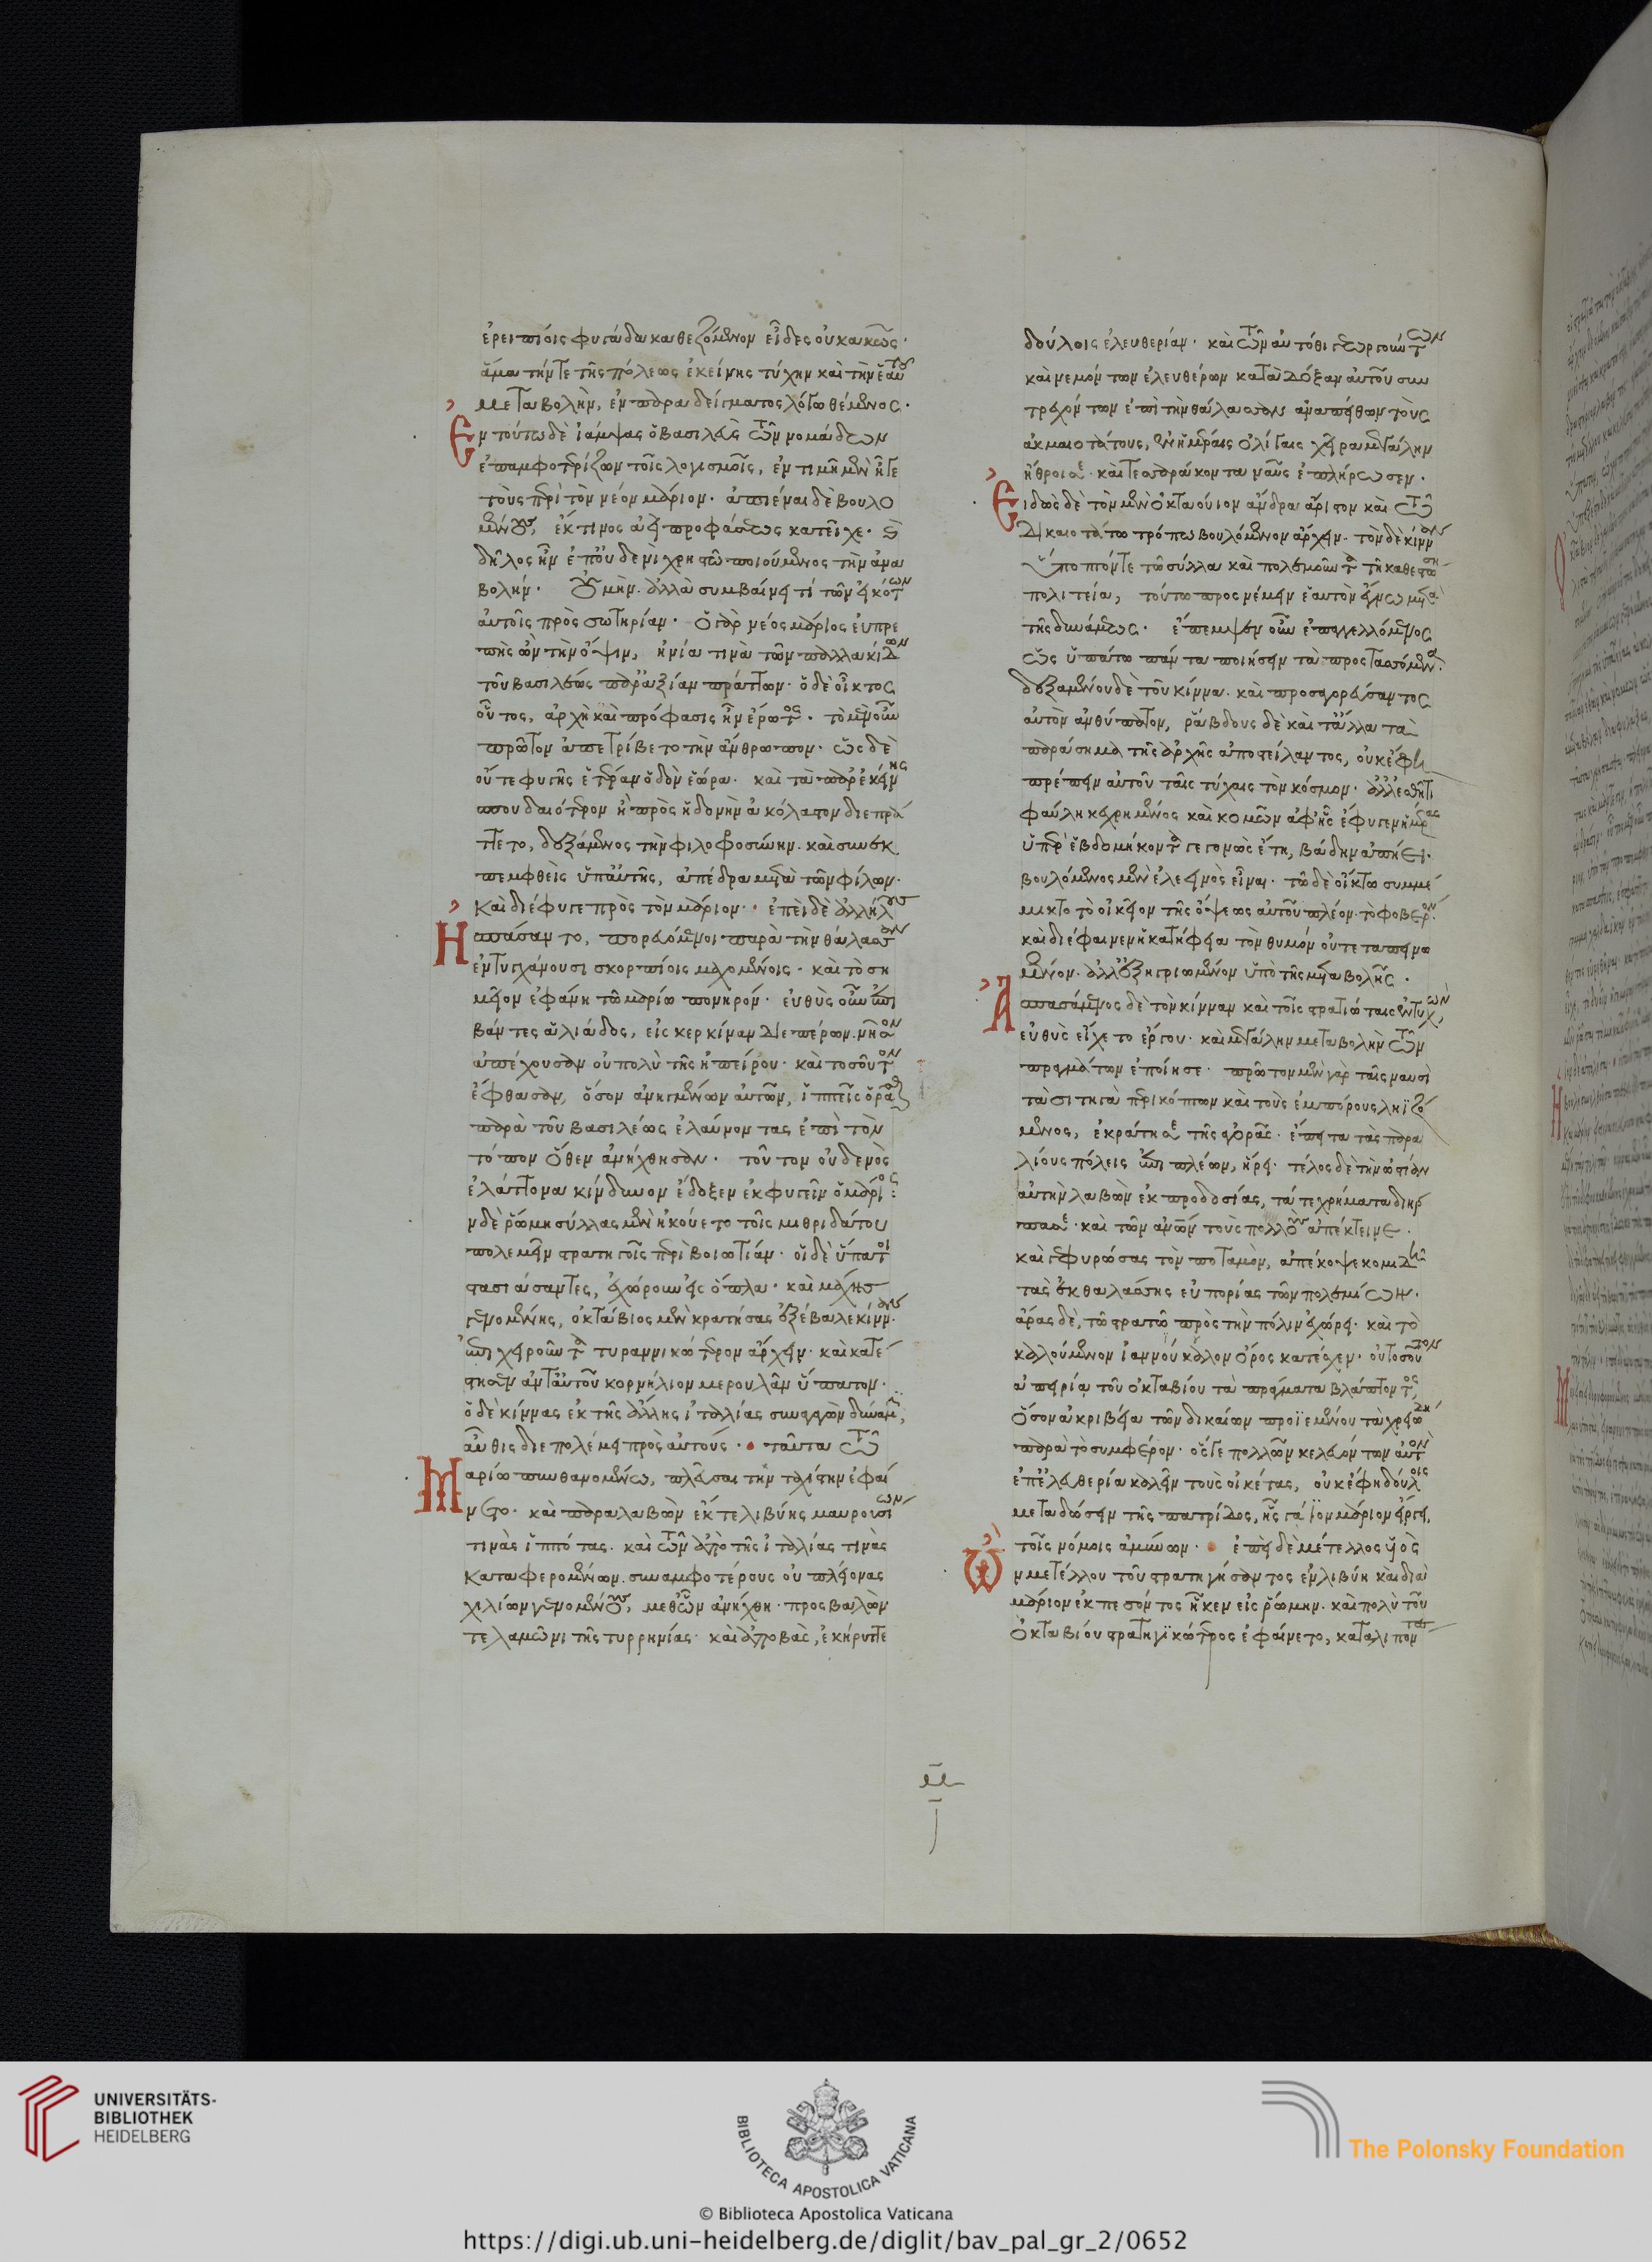 ἐρειπίοις φυγάδα καθεζόμενον εἶδες οὐ κακῶς·
ἅμα τήν τε τῆς πόλεως ἐκείνης τύχην καὶ τὴν ἑαυτοῦ
μεταβολὴν, ἐν παραδείγματος λόγω θέμενος·
Ἐν τούτω δὲ ἰάμψας ὁ βασιλεὺς τῶν νομάδων
ἐπαμφοτερίζων τοῖς λογισμοῖς, ἐν τιμῆ μὲν ἦγε
τοὺς περὶ τὸν νέον μάριον· ἀπιέναι δὲ βουλο
μένους, ἔκ τινος ἀεὶ προφάσεως κατεῖχε· καὶ
δῆλος ἦν ἐπ' οὐδενὶ χρηστῶ ποιούμενος τὴν ἀνα
βολήν· οὐ μὴν ἀλλὰ συμβαίνει τί τῶν εἰκότων
αὐτοῖς πρὸς σωτηρίαν· ὁ γὰρ νέος μάριος εὐπρε
πὴς ὢν τὴν ὄψιν, ἠνία τινὰ τῶν παλλακίδων
τοῦ βασιλέως παρ' ἀξίαν πράττων· ὁ δὲ οἶκτος
οὗτος, ἀρχὴ καὶ πρόφασις ἦν ἔρωτος· τὸ μὲν οὖν
πρῶτον ἀπετρίβετο τὴν ἄνθρωπον· ὡς δὲ
οὔτε φυγῆς ἑτέραν ὁδὸν ἑώρα· καὶ τὰ παρ' ἐκείνης
σπουδαιότερον ἢ πρὸς ἡδονὴν ἀκόλαστον διεπρά
ττετο, δεξάμενος τὴν φιλοφροσύνην· καὶ συνεκ
πεμφθεὶς ὑπ' αὐτῆς, ἀπέδρα μετὰ τῶν φίλων·
καὶ διέφυγε πρὸς τὸν μάριον· ἐπεὶ δὲ ἀλλήλους
Ἠσπάσαντο, πορευόμενοι παρὰ τὴν θάλασσαν
ἐντυγχάνουσι σκορπίοις μαχομένοις· καὶ τὸ ση
μεῖον ἐφάνη τῶ μαρίω πονηρόν· εὐθὺς οὖν ἐπι
βάντες ἁλιάδος, εἰς κερκίναν διεπέρων· νῆσον
ἀπέχουσαν οὐ πολὺ τῆς ἠπείρου· καὶ τοσοῦτον
ἔφθασαν, ὅσον ἀνηγμένων αὐτῶν, ἱππεῖς ὁρᾶσθαι
παρὰ τοῦ βασιλέως ἐλαύνοντας ἐπὶ τὸν
τόπον ὅθεν ἀνήχθησαν· τοῦτον οὐδενὸς
ἐλάττονα κίνδυνον ἔδοξεν ἐκφυγεῖν ὁ μάριος·
ἐν δὲ ῥώμη σύλλας μὲν ἠκούετο τοῖς μιθριδάτου
πολεμεῖν στρατηγοῖς περὶ βοιωτίαν· οἱ δὲ ὕπατοι
στασιάσαντες, ἐχώρουν εἰς ὅπλα· καὶ μάχης
γενομένης, ὀκτάβιος μὲν κρατήσας ἐξέβαλε κίνναν·
ἐπιχειροῦντα τυραννικώτερον ἄρχειν· καὶ κατέ
στησεν ἀντ' αὐτοῦ κορνήλιον μερουλᾶν ὕπατον·
ὁ δὲ κίννας ἐκ τῆς ἄλλης ἰταλίας συναγαγὼν δύναμιν,
αὖθις διεπολέμει πρὸς αὐτούς· ταῦτα τῶ
Μαρίω πυνθανομένω, πλεῦσαι τὴν ταχίστην ἐφαί
νετο· καὶ παραλαβὼν ἔκ τε λιβύης μαυρουσίων
τινὰς ἱππότας· καὶ τῶν ἀπὸ τῆς ἰταλίας τινὰς
καταφερομένων· συναμφοτέρους οὐ πλείονας
χιλίων γενομένους, μεθ' ὧν ἀνήχθη· προσβαλὼν
τελαμῶνι τῆς τυρρηνίας· καὶ ἀποβὰς, ἐκήρυττε
δούλοις ἐλευθερίαν· καὶ τῶν αὐτόθι γεωργούντων
καὶ νεμόντων ἐλευθέρων κατὰ δόξαν αὐτοῦ συν
τρεχόντων ἐπὶ τὴν θάλασσαν ἀναπείθων τοὺς
ἀκμαιοτάτους, ἐν ἡμέραις ὀλίγαις χεῖρα μεγάλην
ἤθροισε· καὶ τεσσαράκοντα ναῦς ἐπλήρωσεν·
Εἰδὼς δὲ τὸν μὲν ὀκταούιον ἄνδρα ἄριστον καὶ τῶ
δικαιοτάτω τρόπω βουλόμενον ἄρχειν· τὸν δὲ κίνναν
ὕποπτόν τε τῶ σύλλα καὶ πολεμοῦντα τῆ καθεστώση
πολιτεία, τούτω προσνέμειν ἑαυτὸν ἔγνω μετὰ
τῆς δυνάμεως· ἔπεμψεν οὖν ἐπαγγελλόμενος
ὡς ὑπάτω πάντα ποιήσειν τὰ προστασσόμενα·
δεξαμένου δὲ τοῦ κίννα· καὶ προσαγορεύσαντος
αὐτὸν ἀνθύπατον, ῥάβδους δὲ καὶ τἄλλα τὰ
παράσημα τῆς ἀρχῆς ἀποστείλαντος, οὐκ ἔφη
πρέπειν αὐτοῦ ταῖς τύχαις τὸν κόσμον· ἀλλ' ἐσθῆτι
φαύλη κεχρημένος καὶ κομῶν ἀφ' ἧς ἔφυγεν ἡμέρας
ὑπὲρ ἑβδομήκοντα γεγονὼς ἔτη, βάδην ἀπήει·
βουλόμενος μὲν ἐλεεινὸς εἶναι· τῶ δὲ οἴκτω συμμέ
μικτο τὸ οἰκεῖον τῆς ὄψεως αὐτοῦ πλέον· τὸ φοβερόν·
καὶ διέφαινεν ἡ κατήφεια τὸν θυμὸν οὔτε ταπεινω
μένον· ἀλλ' ἐξηγριωμένον ὑπὸ τῆς μεταβολῆς·
Ἀσπασάμενος δὲ τὸν κίνναν καὶ τοῖς στρατιώταις ἐντυχὼν,
εὐθὺς εἴχετο ἔργου· καὶ μεγάλην μεταβολὴν τῶν
πραγμάτων ἐποίησε· πρῶτον μὲν γὰρ ταῖς ναυσὶ
τὰ σιτηγὰ περικόπτων καὶ τοὺς ἐμπόρους ληϊζό
μενος, ἐκράτησε τῆς ἀγορᾶς· ἔπειτα τὰς παρα
λίους πόλεις ἐπιπλέων, ἥρει· τέλος δὲ τὴν ὠστίαν
αὐτὴν λαβὼν ἐκ προδοσίας, τά τε χρήματα διήρ
πασε· καὶ τῶν ἀνθρώπων τοὺς πολλοὺς ἀπέκτεινε·
καὶ γεφυρώσας τὸν ποταμὸν, ἀπέκοψε κομιδῆ
τὰς ἐκ θαλάσσης εὐπορίας τῶν πολεμίων·
ἄρας δὲ, τῶ στρατῶ πρὸς τὴν πόλιν ἐχώρει· καὶ τὸ
καλούμενον ἰαννούκλον ὄρος κατέσχεν· οὐ τοσοῦτον
ἀπειρία τοῦ ὀκταβίου τὰ πράγματα βλάπτοντος,
ὅσον ἀκριβεία τῶν δικαίων προϊεμένου τὰ χρειώδη
παρὰ τὸ συμφέρον· ὅς γε πολλῶν κελευόντων αὐτὸν
ἐπ' ἐλευθερία καλεῖν τοὺς οἰκέτας, οὐκ ἔφη δούλοις
μεταδώσειν τῆς πατρίδος, ἧς γάϊον μάριον εἴργει,
τοῖς νόμοις ἀμύνων· ἐπεὶ δὲ μέτελλος υἱὸς
Ὢν μετέλλου τοῦ στρατηγήσαντος ἐν λιβύη καὶ διὰ
μάριον ἐκπεσόντος ἧκεν εἰς ῥώμην· καὶ πολὺ τοῦ
ὀκταβίου στρατηγικώτερος ἐφαίνετο, καταλιπόντες
UNIVERSITÄTS-
BIBLIOTHEK
HEIDELBERG
BIBLIOTECA APOSTOLICA VATICANA
The Polonsky Foundation
© Biblioteca Apostolica Vaticana
https://digi.ub.uni-heidelberg.de/diglit/bav_pal_gr_2/0652